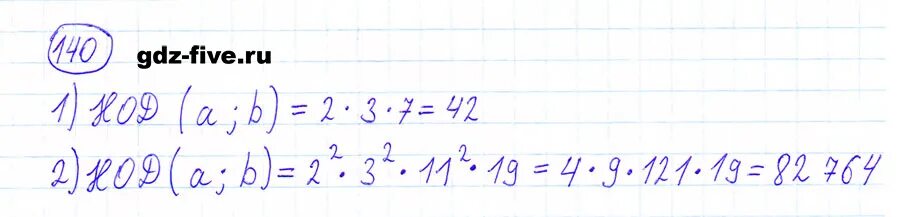 140
gdz-five.ru
1) НОД (a; b) = 2 · 3 · 7 = 42
2) НОД (a; b) = 2² · 3² · 11² · 19 = 4 · 9 · 121 · 19 = 82 764